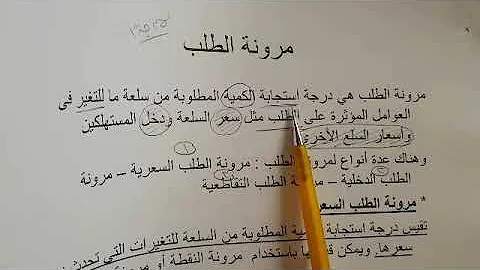 مرونة الطلب
مرونة الطلب هي درجة استجابة الكمية المطلوبة من سلعة ما للتغير فى
العوامل المؤثرة على الطلب مثل سعر السلعة ودخل المستهلكين
وأسعار السلع الأخرى
وهناك عدة أنواع لمرونة الطلب : مرونة الطلب السعرية – مرونة
الطلب الدخلية – مرونة الطلب التقاطعية
* مرونة الطلب السعر
تقيس درجة استجابة المطلوبة من السلعة للتغيرات التي تحدث
سعرها. ويمكن باستخدام مرونة النقطة أو مرونة